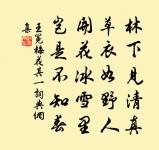 林下見清真
草衣如野人
開花冰雪里
豈是不知春
王冕梅花其一詞典網
集